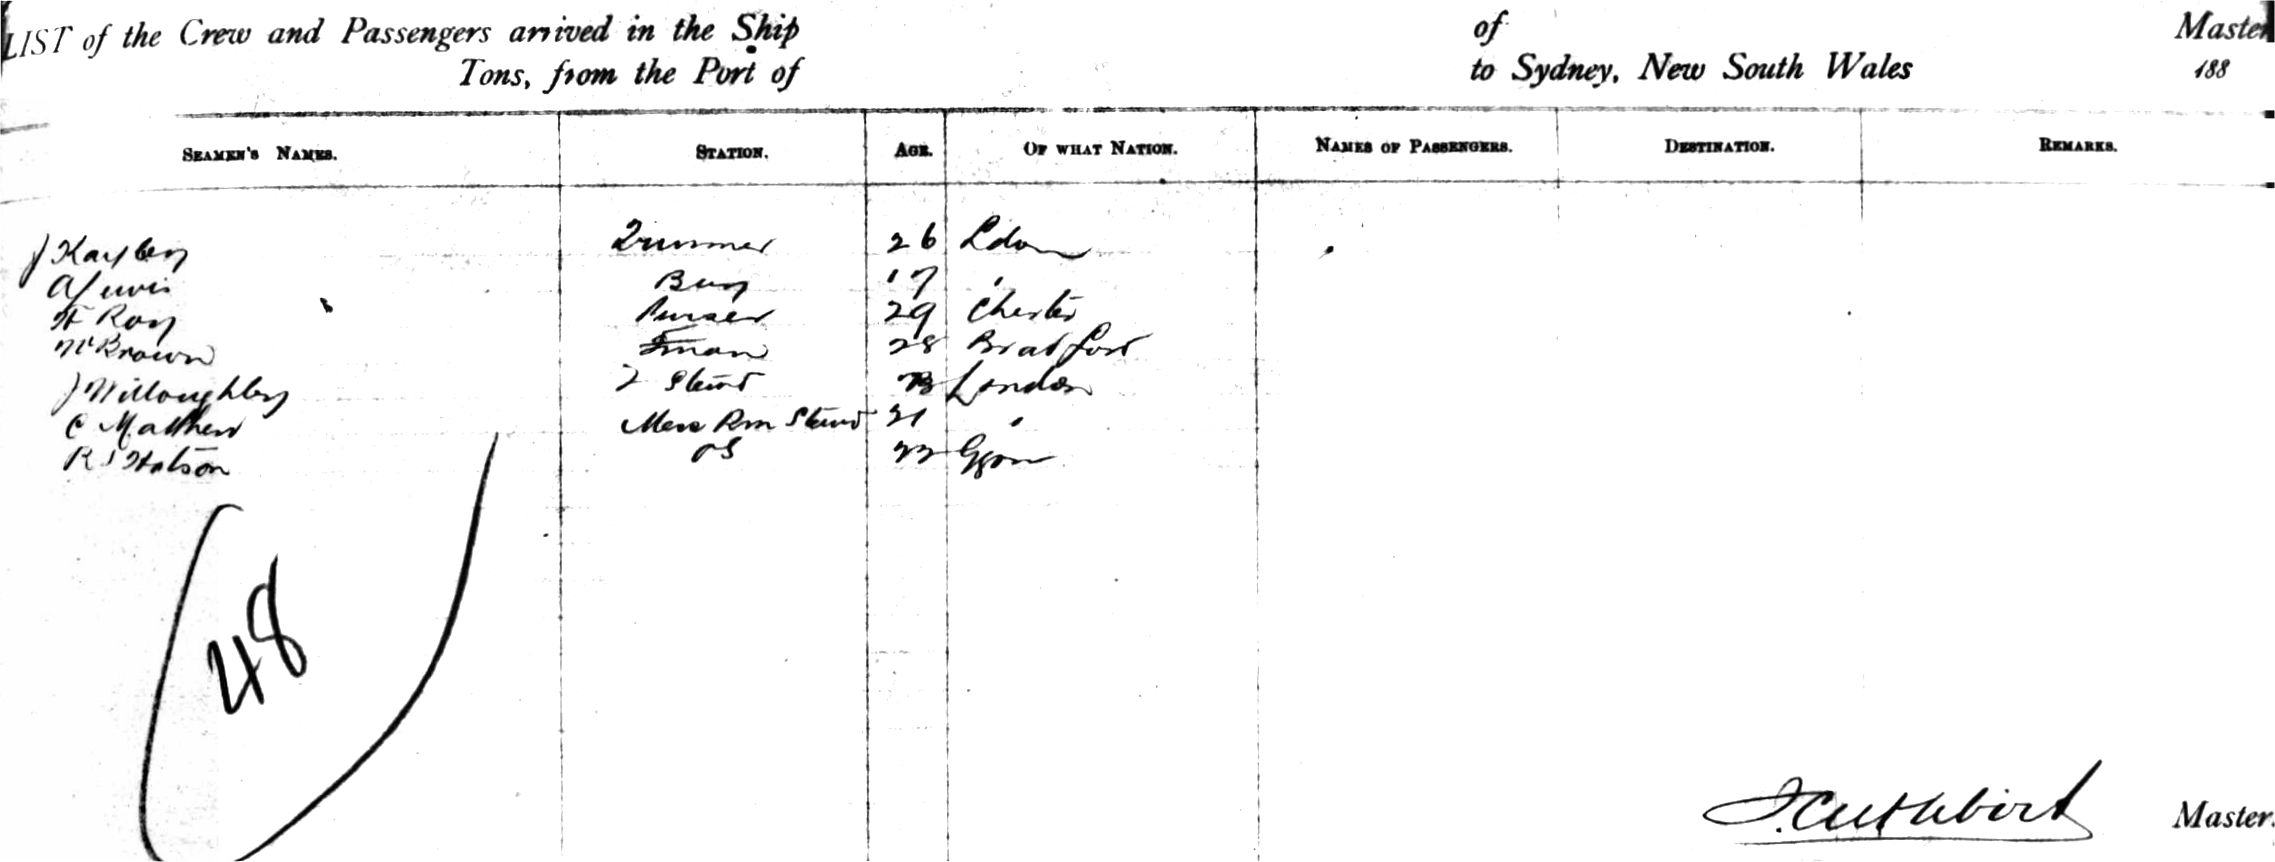 LIST of the Crew and Passengers arrived in the Ship of Master
Tons, from the Port of to Sydney, New South Wales 188
SEAMEN'S NAMES. STATION. AGE. OF WHAT NATION. NAMES OF PASSENGERS. DESTINATION. REMARKS.
J 26 Ldon
A Lewis Boy 17 "
H Roy Purser 29 Chester
W Brown Fman 28 Bradford
J Willoughby 2 Stewd London
C Matthew Mess Rm Stewd 21 "
R J OS 22
48
J. Cuthbert Master.